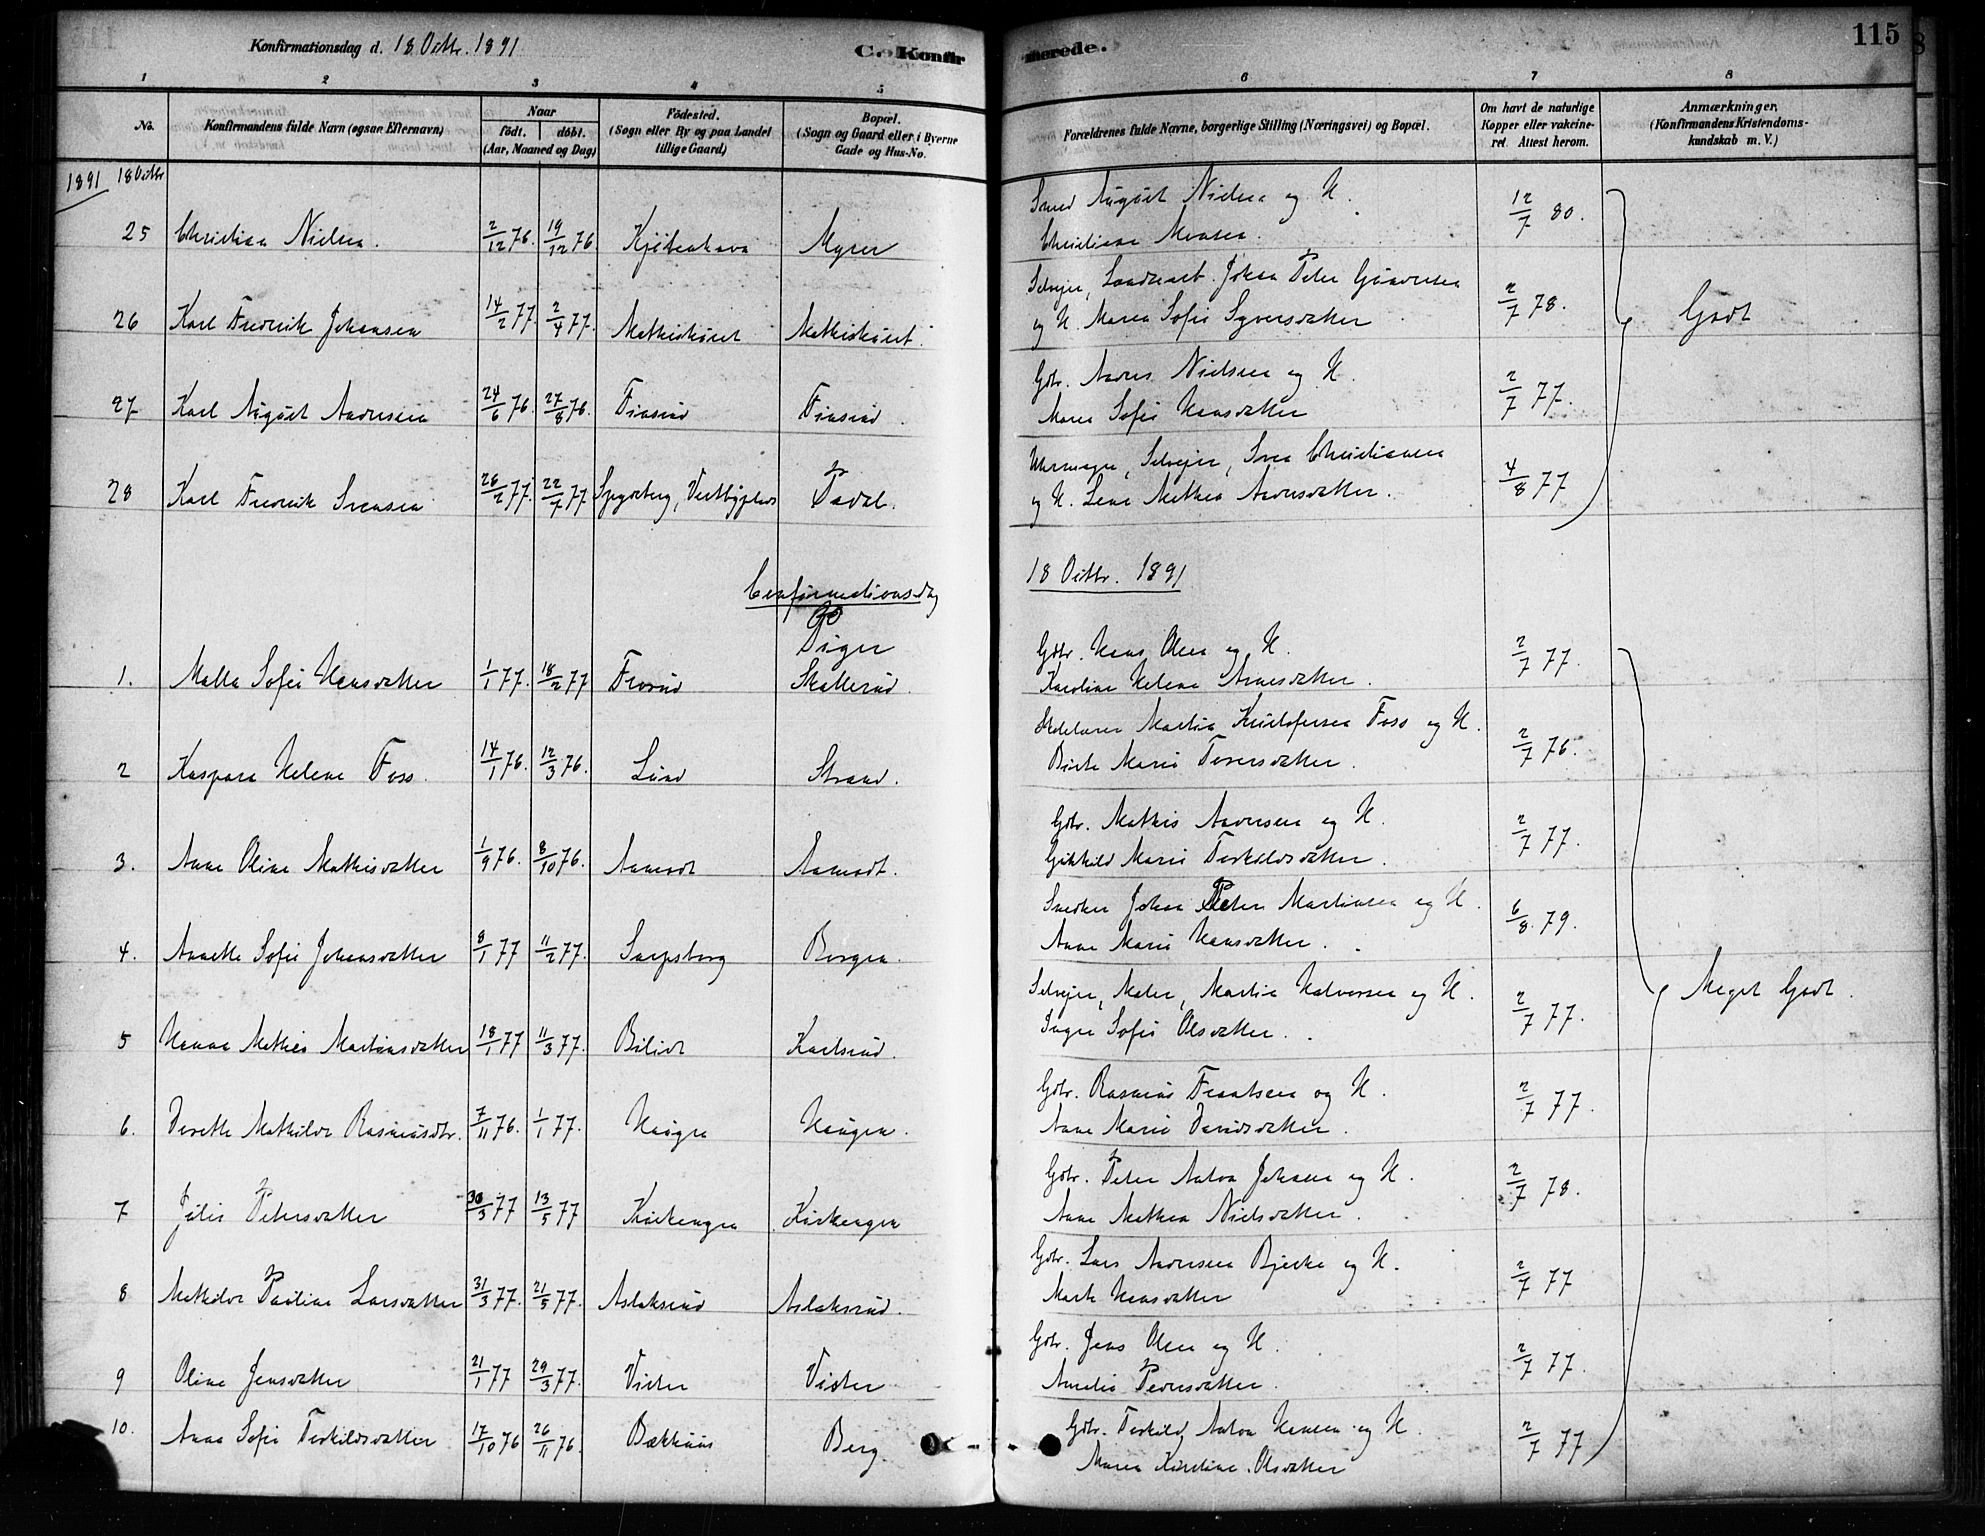 Konfirmationsdag d. 18 Octbr. 1891
C. Konfirmerede.
115
1 2 3 4 5 6 7 8
No.
Konfirmandens fulde Navn (ogsaa Efternavn)
Naar
födt. döbt.
(Aar, Maaned og Dag)
Födested.
(Sogn eller By og paa Landet
tillige Gaard)
Bopæl.
(Sogn og Gaard eller i Byerne
Gade og Hus-No.
Forældrenes fulde Navne, borgerlige Stilling (Næringsvei) og Bopæl.
Om havt de naturlige
Kopper eller vakcine-
ret. Attest herom.
Anmærkninger,
(Konfirmandens Kristendoms-
kundskab m. V.)
1891 18 Octbr
25 Christian Nielsen. 2/12 76. 19/12 76 Kjöbenhavn Myrer Smed August Nielsen og H. 12/7 80.
Christiane Monsen.
26 Karl Fredrik Johansen 14/2 77. 2/4 77. Mathiskaset Mathiskaset. Selvejer, Johan Peter Gundersen 2/7 78. Godt
og H. Maren Sofie Syversdatter
27 Karl August Andersen 24/6 76. 27/8 76. Finsrud Finsrud. Gbr. Anders Nielsen og H. 2/7 77.
Maren Sofie Hansdatter
28 Karl Fredrik Svensen 26/2 77. 22/7 77 Spydeberg, Vestbyplads Pødal. Uhrmager, Selvejer, Sven Christiansen 4/8 77
og H. Lene Mathea Andersdatter.
Confirmationsdag 18 Octbr. 1891
Piger
1. Malla Sofie Hansdatter 1/1 77. 18/2 77 Frorud Skallerud. Gbr. Hans Olsen og H. 2/7 77.
Karoline Helene Arnesdatter.
2 Kaspara Helene Foss. 14/1 76. 12/3 76. Lund Strand. Skolelærer Martin Kristofersen Foss og H. 2/7 76.
Birte Marie Toversdatter.
3. Anne Oline Mathisdatter 1/9 76. 8/10 76. Aamodt Aamodt. Gbr. Mathis Andersen og H. 2/7 77.
Marie Terkildsdatter.
4. Annette Sofie Johansdatter 8/1 77 11/2 77. Sarpsborg Borgen. Snedker Johan Peter Martinsen og H. 6/8 79.
Anne Marie Hansdatter.
5 Hanna Mathea Martinsdatter 18/1 77 11/3 77. Bilidt Karlsrud. Selvejer, Maler, Martin Halvorsen og H. 2/7 77. Meget Godt.
Inger Sofie Olsdatter.
6. Dorette Mathilde Rasmusdtr. 7/11 76. 1/1 77. Haugen Haugen. Gbr. Rasmus Frantsen og H. 2/7 77.
Anne Marie Davidsdatter.
7 Julie Petersdatter 30/3 77 13/5 77 Kirkengen Kirkengen Gbr. Peter Anton Johnsen og H. 2/7 78.
Anne Mathea Nielsdatter.
8 Mathilde Pauline Larsdatter 31/3 77. 21/5 77. Aslaksrud Aslaksrud. Gbr. Lars Andersen Bjerke og H. 2/7 77
Marte Hansdatter
9 Oline Jensdatter 21/1 77 29/3 77. Vister Vister Gbr. Jens Olsen og H. 2/7 77.
Amalie Pedersdatter.
10. Anna Sofie Terkildsdatter 17/10 76 26/11 76. Bækkhus Berg Gbr. Terkild Anton Hansen og H. 2/7 77
Maren Kirstine Olsdatter